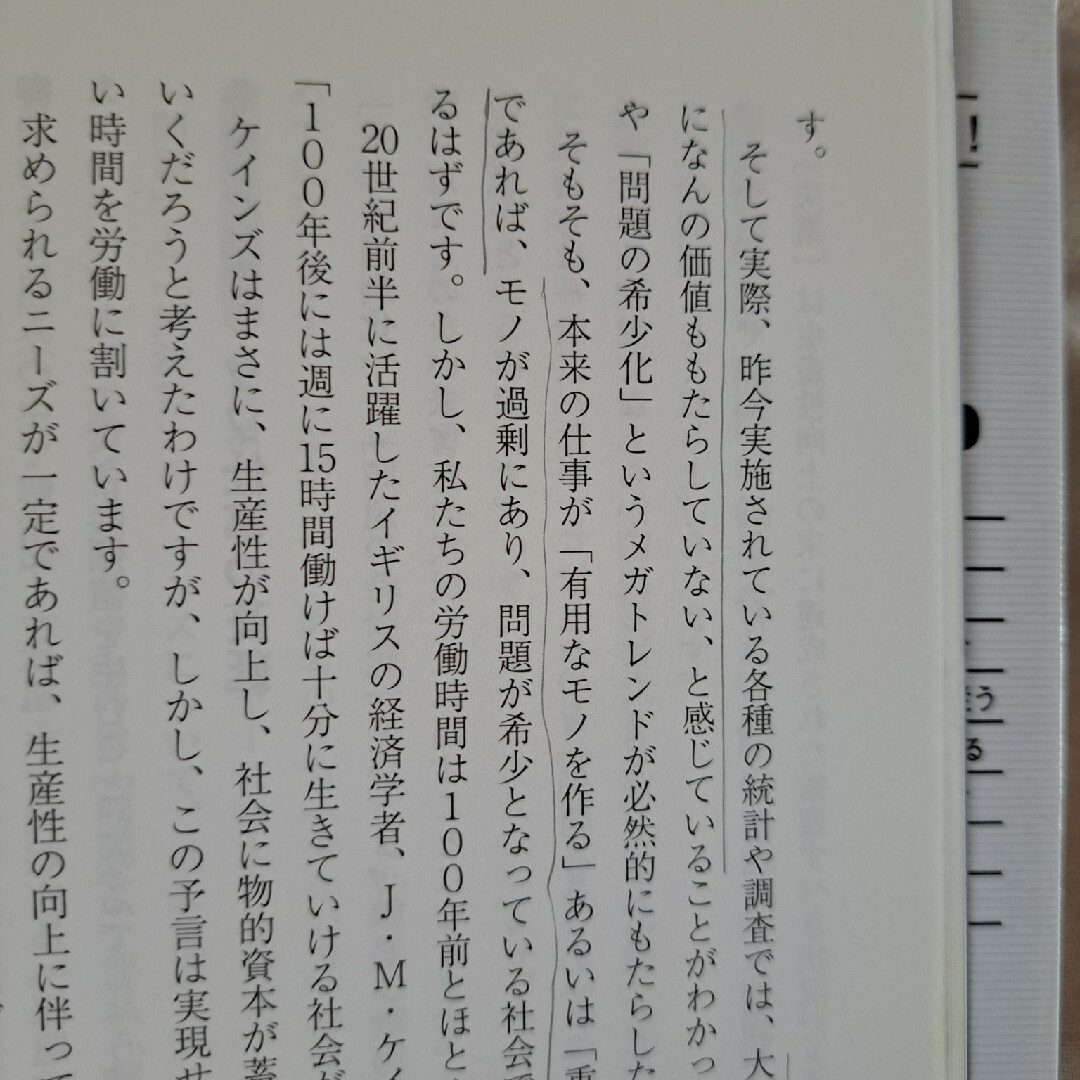 す。
そして実際、昨今実施されている各種の統計や調査では、大
になんの価値ももたらしていない、と感じていることがわかっ
や「問題の希少化」というメガトレンドが必然的にもたらした
そもそも、本来の仕事が「有用なモノを作る」あるいは「重
であれば、モノが過剰にあり、問題が希少となっている社会で
るはずです。しかし、私たちの労働時間は100年前とほと
20世紀前半に活躍したイギリスの経済学者、J・M・ケイ
「100年後には週に15時間働けば十分に生きていける社会が
ケインズはまさに、生産性が向上し、社会に物的資本が蓄
いくだろうと考えたわけですが、しかし、この予言は実現せ
い時間を労働に割いています。
求められるニーズが一定であれば、生産性の向上に伴って
！
う
る